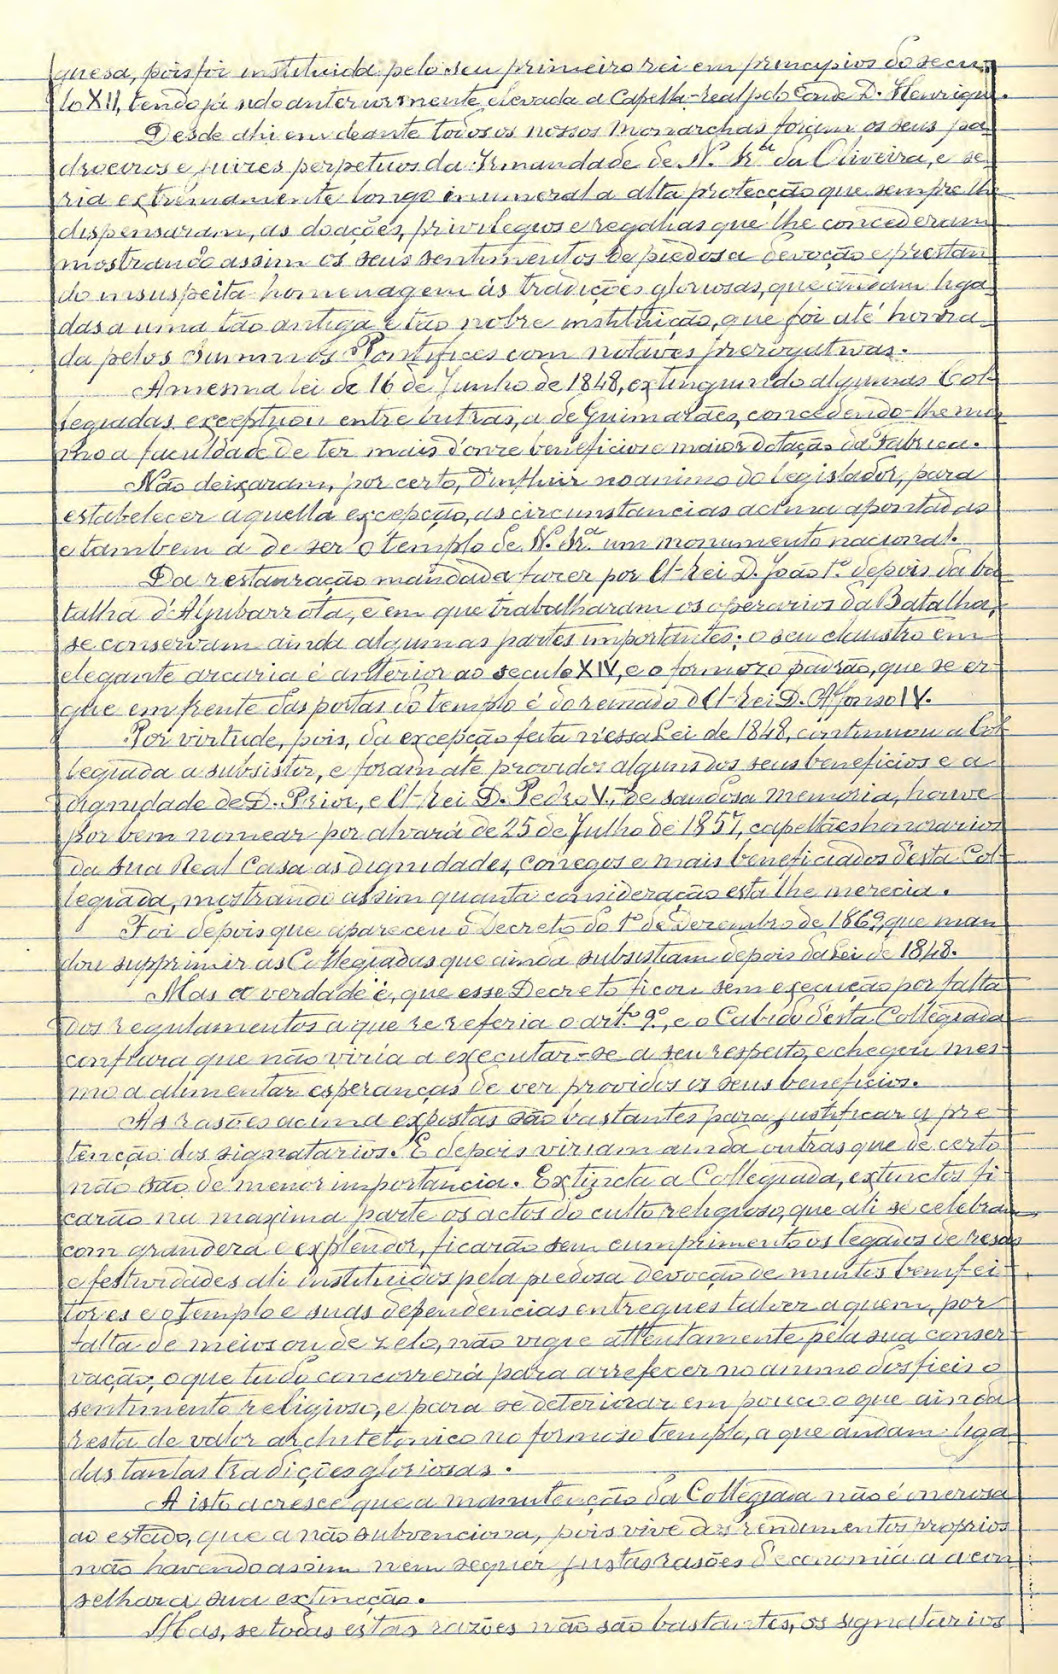 gueza, pois foi instituida pelo seu primeiro rei em principios do secu-
lo XII, tendo já sido anteriormente elevada a Capella-real pelo Conde D. Henrique.
Desde ahi em deante todos os nossos Monarchas foram os seus pa-
droeiros e juizes perpetuos da Irmandade de N. Srª da Oliveira, e se-
ria extremamente longo enumeral a alta protecção que sempre lhe
dispensaram, as doações, privilegios e regalias que lhe concederam
mostrando assim os seus sentimentos de piedosa devoção e prestan-
do insuspeita homenagem ás tradições gloriosas, que andam liga-
das a uma tão antiga e tão nobre instituição, que foi até honra-
da pelos Summos Pontifices com notaves prerogativas.
A mesma lei de 16 de Junho de 1848, extinguindo algumas Col-
legiadas exceptuou entre outras, a de Guimarães, concedendo-lhe mes-
mo a faculdade de ter mais d'onze beneficios e maior dotação da Fabrica.
Não deixaram, por certo, d'influir no animo do legislador, para
estabelecer aquella excepção, as circunstancias acima apontadas
e tambem a de ser o templo de N. Srª um monumento nacional.
Da restauração mandada fazer por El-rei D. João 1º depois da ba-
talha d'Aljubarrota, e em que trabalharam os operarios da Batalha,
se conservam ainda algumas partes importantes; o seu claustro em
elegante arcaria é anterior ao seculo XIV, e o formozo padrão, que se er-
gue em frente das portas do templo é do reinado d'El-rei D. Affonso IV.
Por virtude, pois, da excepção feita n'essa Lei de 1848, continuou a Col-
legiada a subsistir, e foram até providos alguns dos seus beneficios e a
dignidade de D. Prior, e El-rei D. Pedro V., de saudosa memoria, houve
por bem nomear por alvará de 25 de Julho de 1857, capellães honorarios
da sua Real Casa as dignidades, conegos e mais beneficiados d'esta Col-
legiada, mostrando assim quanta consideração esta lhe merecia.
Foi depois que appareceu o Decreto do 1º de Dezembro de 1869, que man-
dou supprimir as Collegiadas que ainda subsistiam depois da Lei de 1848.
Mas a verdade é, que esse Decreto ficou sem execução por falta
dos regulamentos a que se referia o artº 9º, e o Cabido d'esta Collegiada
confiava que não viria a executar-se a seu respeito, e chegou mes-
mo a alimentar esperanças de ver providos os seus beneficios.
As rasões acima expostas são bastantes para justificar a pre-
tenção dos signatarios. E depois viriam ainda outras que de certo
não são de menor importancia. Extincta a Collegiada, extinctos fi-
carão na maxima parte os actos do culto religioso, que ali se celebram
com grandeza e explendor, ficarão sem cumprimento os legados de resas
e festividades ali instituidos pela piedosa devoção de muitos bemfei-
tores e o templo e suas dependencias entregues talvez a quem, por
falta de meios ou de zelo, não vigie attentamente pela sua conser-
vação, o que tudo concorrerá para arrefecer no animo dos fieis o
sentimento religioso, e para se deteriorar em pouco o que ainda
resta de valor architetonico no formoso templo, a que andam liga-
das tantas tradições gloriosas.
A isto acresce que a manutenção da Collegiada não é onerosa
ao estado, que a não subvenciona, pois vive dos rendimentos proprios
não havendo assim nem sequer justas rasões d'economia a acon-
selhar a sua extincção.
Mas, se todas estas razões não são bastantes, os signatarios